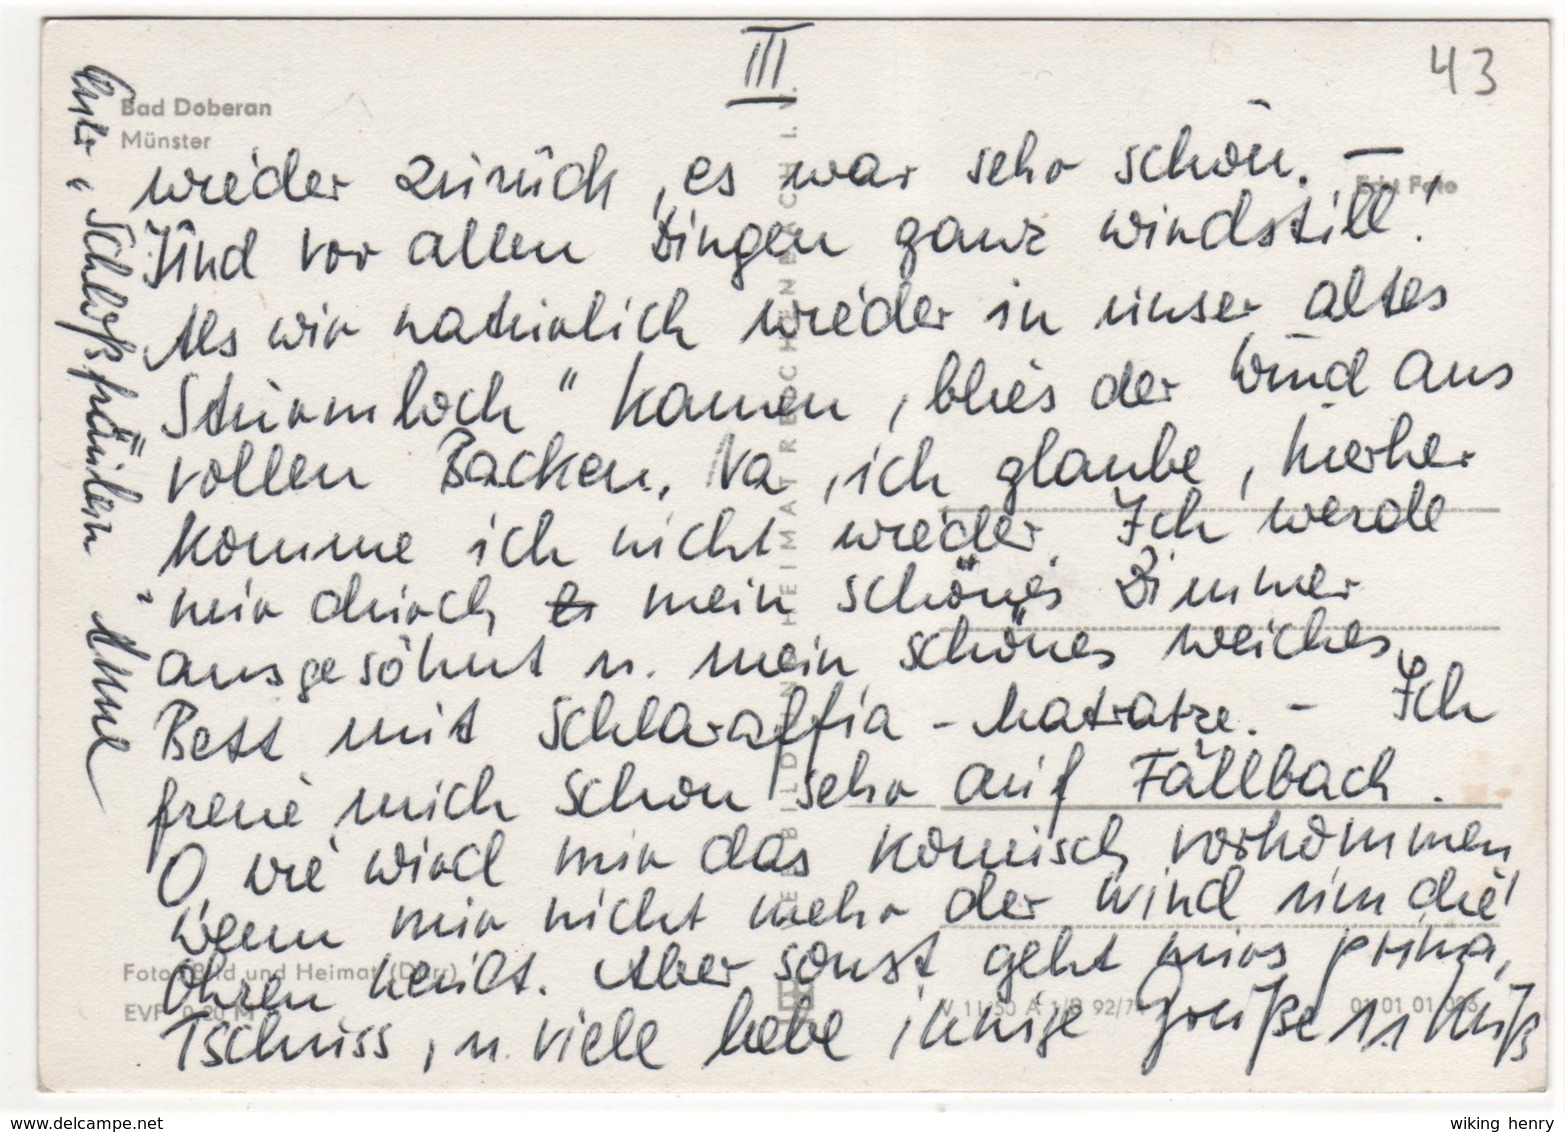 III
43
Bad Doberan
Münster
Echt Foto
wieder zurück, es war sehr schön. —
Und vor allen Dingen ganz windstill!
Als wir natürlich wieder in unser altes
Sturmloch" kamen, blies der Wind aus
vollen Backen. Na, ich glaube, hierher
komme ich nicht wieder. Ich werde
nur durch mein schönes Zimmer
ausgesöhnt u. mein schönes weiches
Bett mit Schlaraffia-Matratze. - Ich
freue mich schon sehr auf Fällbach.
O wie wird mir das komisch vorkommen
wenn mir nicht mehr der Wind um die
Ohren heult. Aber sonst geht mirs prima,
Tschüss, u. viele liebe innige Grüße u. Kuß
Euer „Schloßfräulein"
BILD UND HEIMAT REICHENBACH I. V.
Foto: Bild und Heimat (Darr)
EVP 0,20 M
V 11/50 A 1/B 92/74
01 01 01 096
wiking henry